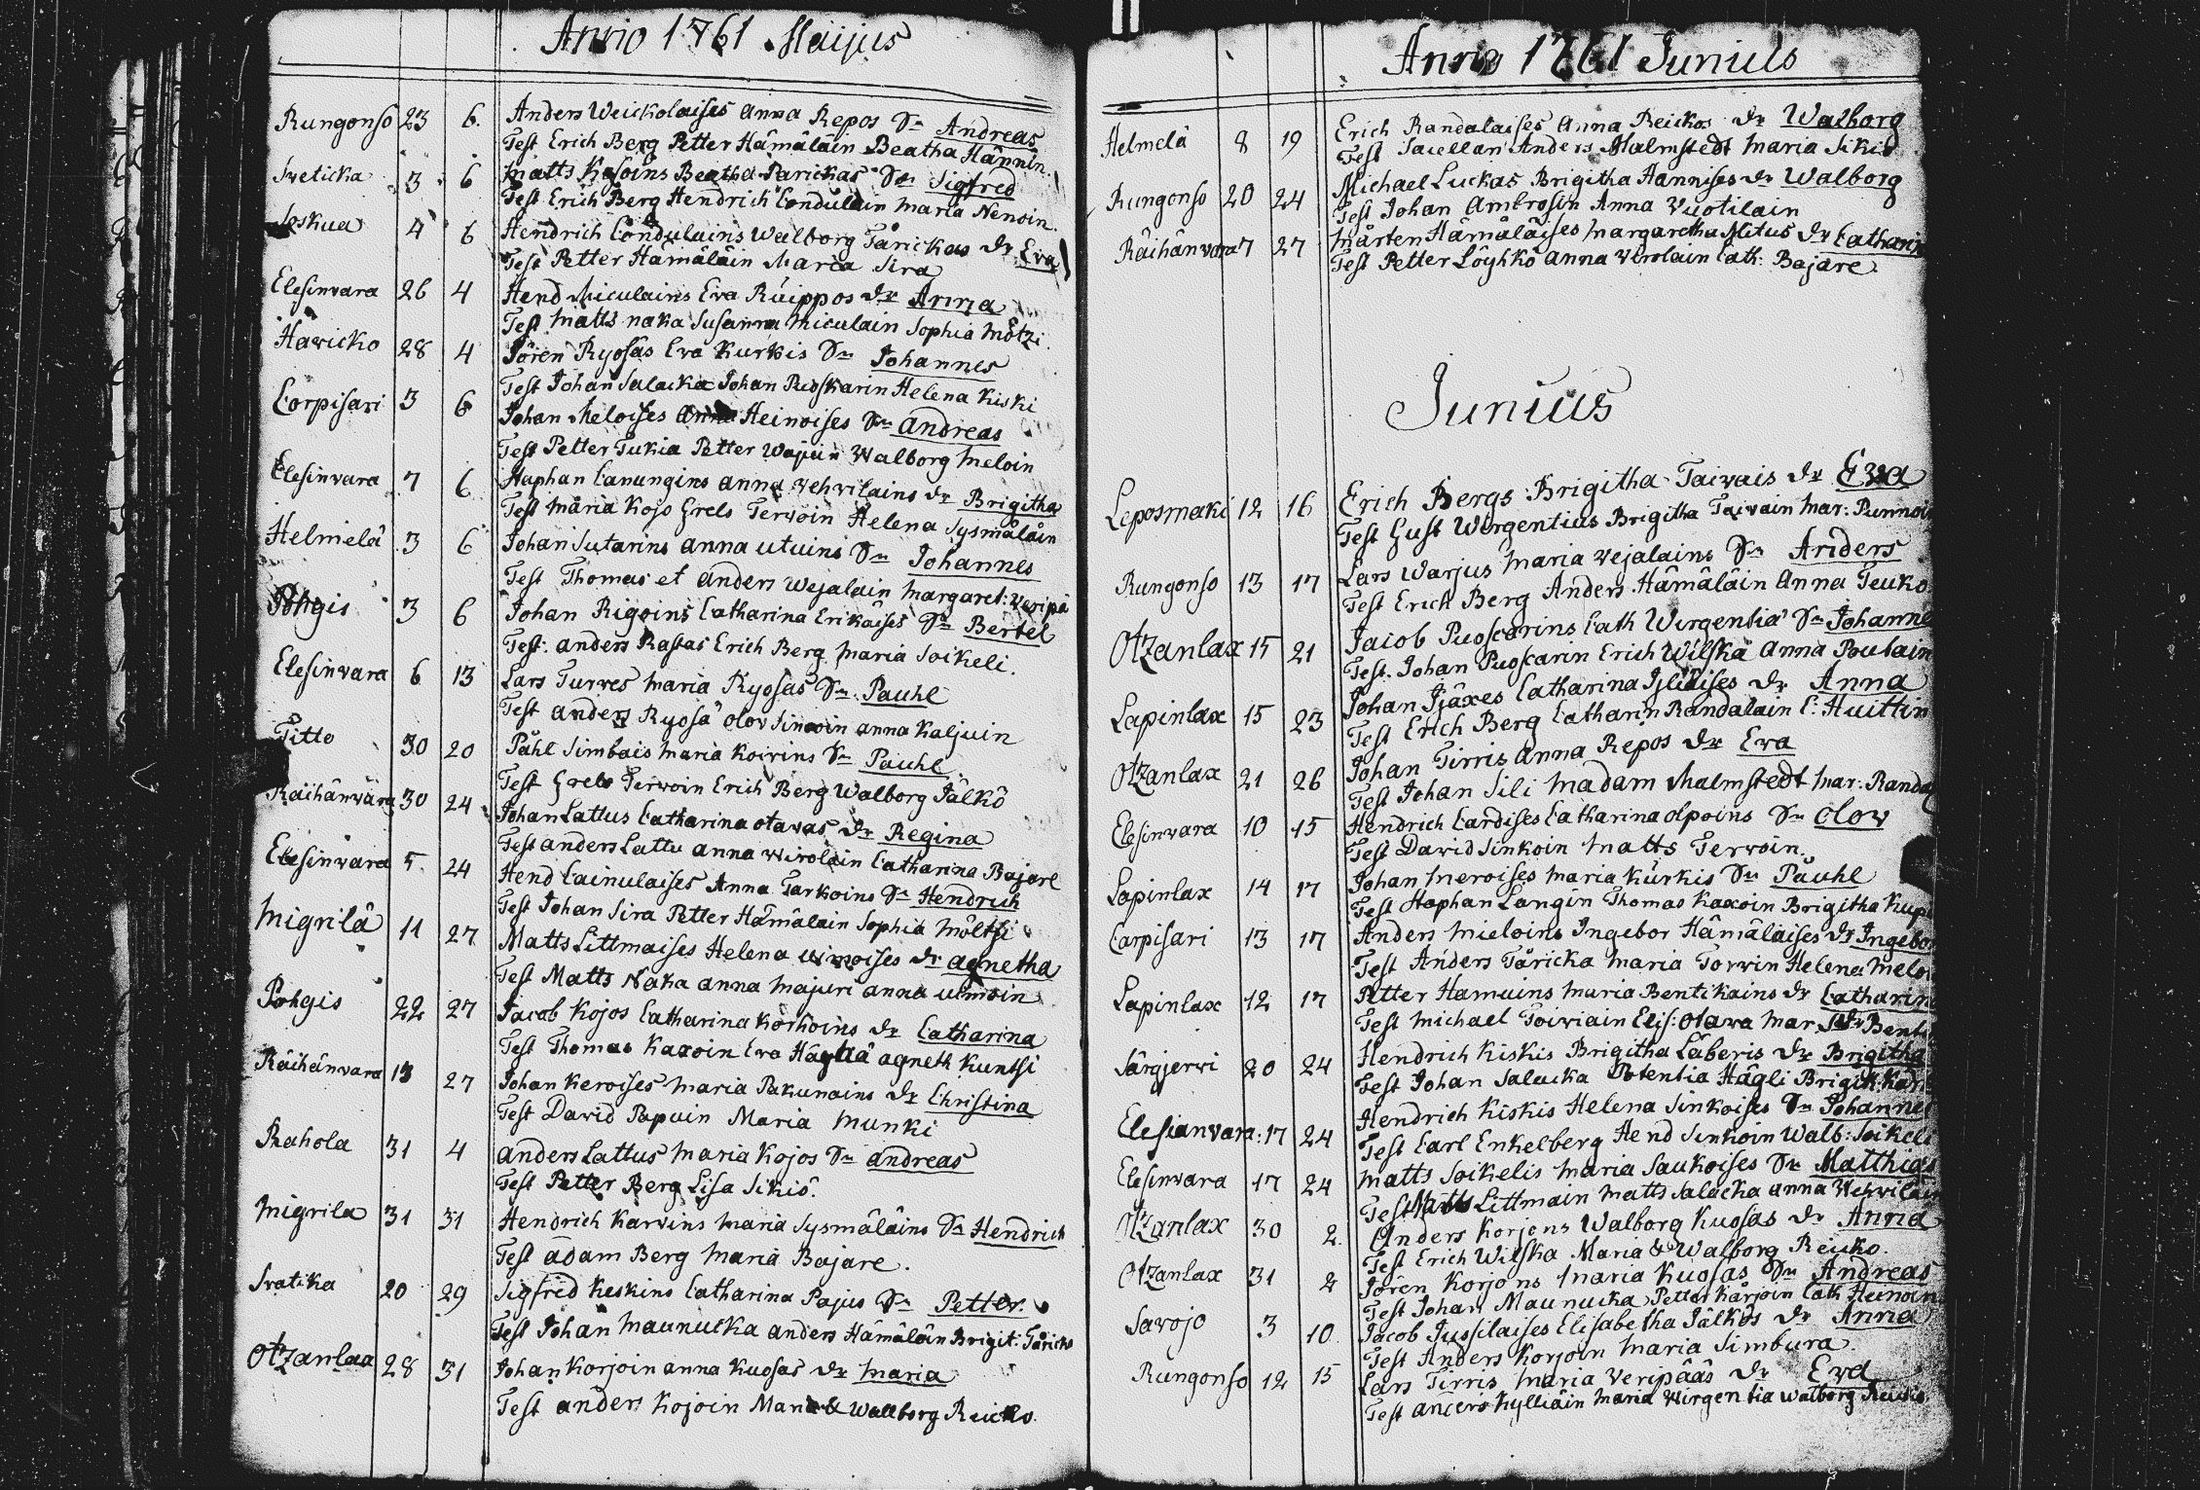 Anno 1761 Maijus
Rungonso 23 6. Anders Weickolaises Anna Repos Sn Andreas
Test Erich Berg Petter Hämäläin Beatha Hännin.
Sveticka 3 6 Matts Kosoins Beatha Parickas Sn Sigfred
Test Erich Berg Hendrich Condulain Maria Nenoin.
Joskua 4 6 Hendrich Condulains Walborg Tårickas dr Eva
Test Petter Hämäläin Maria Sira
Elesinvara 26 4 Hend Miculains Eva Räippos dr Anna
Test Matts Naka Susanna Miculain Sophia Mötzi.
Hawicko 28 4 Jören Ryosäs Eva Kurkis Sn Johannes
Test Johan Salacka Johan Puoskarin Helena Kiski
Corpisari 3 6 Johan Meloises Anna Heinoises Sn Andreas
Test Petter Tukia Petter Wajain Walborg Meloin
Elesinvara 7 6 Staphan Canungins Anna Vehvilains dr Brigitha
Test Maria Kojo Grels Tervoin Helena Sysmäläin
Helmelä 3 6 Johan Sutarins Anna Utuins Sn Johannes
Test Thomas et Anders Wejalain Margaret: Veripä
Pohgis 3 6 Johan Rigoins Catharina Erikäises Sn Bertel
Test: Anders Rastas Erich Berg Maria Soikeli.
Elesinvara 6 13 Lars Turves Maria Ryosas Sn. Pauhl
Test Anders Ryosä Olov Sinvoin Anna Kaljuin
Titto 30 20 Påhl Simbais Maria Koivins Sn Pauhl
Test Grels Tervoin Erich Berg Walborg Jälkö
Räihänvära 30 24 Johan Lattus Catharina Otavas dr Regina
Test Anders Lattu Anna Wirolain Catharina Bajare
Elesinvara 5 24 Hend Cainulaises Anna Tarkoins Sn Hendrich
Test Johan Sira Petter Hämälain Sophia Möltsi
Migrilä 11 27 Matts Littmaises Helena Uimoises dr Agnetha
Test Matts Naka Anna Majuri Anna Uimoin
Pohgis 22 27 Jacob Kojos Catharina Korhoins dr Catharina
Test Thomas Kaxoin Eva Häglä Agneth Kuntsi
Räihänvara 13 27 Johan Keroises Maria Pakunains dr Christina
Test David Papuin Maria Munki
Rahola 31 4 Anders Lattus Maria Kojos Sn Andreas
Test Petter Berg Lisa Sikiö.
Migrila 31 31 Hendrich Karvins Maria Sysmäläins Sn Hendrich
Test Adam Berg Maria Bajare.
Svatika 20 29 Sigfred Keskins Catharina Pajus Sn Petter.
Test Johan Maunucka Anders Hämäläin Brigit: Tåricka
Otzanlax 28 31 Johan Korjoin Anna Kuosas dr Maria
Test Anders Kojoin Maria & Wallborg Reicko.
Anno 1761 Junius
Helmelä 8 19 Erich Randalaises Anna Reickos dr Walborg
Test Anders Malmstedt Maria Sikiö
Rungonso 20 24 Michael Luckas Brigitha Hannises dr Walborg
Test Johan Ambrosin Anna Vuotilain
Räihänvara 7 27 Mårten Hämäläises Margaretha Mitus dr Catharin
Test Petter Löyhkö Anna Wirolain Cath: Bajare.
Junius
Leposmaki 12 16 Erich Bergs Brigitha Taivais dr Eva
Test Gust Wirgentius Brigitha Taivain Mar: Punnoi
Rungonso 13 17 Lars Warjus Maria Vejalains Sn Anders
Test Erich Berg Anders Hämäläin Anna Teuko
Otzanlax 15 21 Jacob Puoscarins Cath Wirgentia Sn Johanne
Test. Johan Puoscarin Erich Wilskä Anna Poutain
Lapinlax 15 23 Johan Jjäxes Catharina dr Anna
Test Erich Berg Catharin Randalain C: Huittin
Otzanlax 21 26 Johan Tirris Anna Repos dr Eva
Test Johan Sili Madam Malmstedt Mar: Randa
Elesinvara 10 15 Hendrich Cardises Catharina Olpoins Sn Olov
Test David Sinkoin Matts Tervoin.
Lapinlax 14 17 Johan Meroises Maria Kurkis Sn Påuhl
Test Staphan Langin Thomas Kaxoin Brigitha Kupi
Carpisari 13 17 Anders Mieloins Ingebor Hämäläises dr Ingebo
Test Anders Tåricka Maria Torvin Helena Melo
Lapinlax 12 17 Petter Hamuins Maria Bentikains dr Catharin
Test Michael Toiviain Elis: Otava Mar Bent
Särgjervi 20 24 Hendrich Kiskis Brigitha Läberis dr Brigitha
Test Johan Salacka Potentia Hägli Brigit: Kar
Elesianvara: 17 24 Hendrich Kiskis Helena Sinkoises Sn Johannes
Test Carl Enkelberg Hend Sinkoin Walb: Soikeli
Elesinvara 17 24 Matts Soikelis Maria Saukoises Sn Matthias
Test Matts Littmain Matts Salacka Anna Wehvilain
Otzanlax 30 2. Anders Korjons Walborg Kuosas dr Anna
Test Erich Wilska Maria & Walborg Reicko.
Otzanlax 31 2 Jören Korjons Maria Kuosas Sn Andreas
Test Johan Maunucka Petter Karjoin Cath Heinoin
Savojo 3 10. Jacob Jussilaises Elisabetha Jälkös dr Anna
Test Anders Korjoin Maria Simbura.
Rungonso 12 15 Lars Tirris Maria Veripääs dr Eva
Test Anders Kylliäin Maria Wirgentia Walborg Reicko